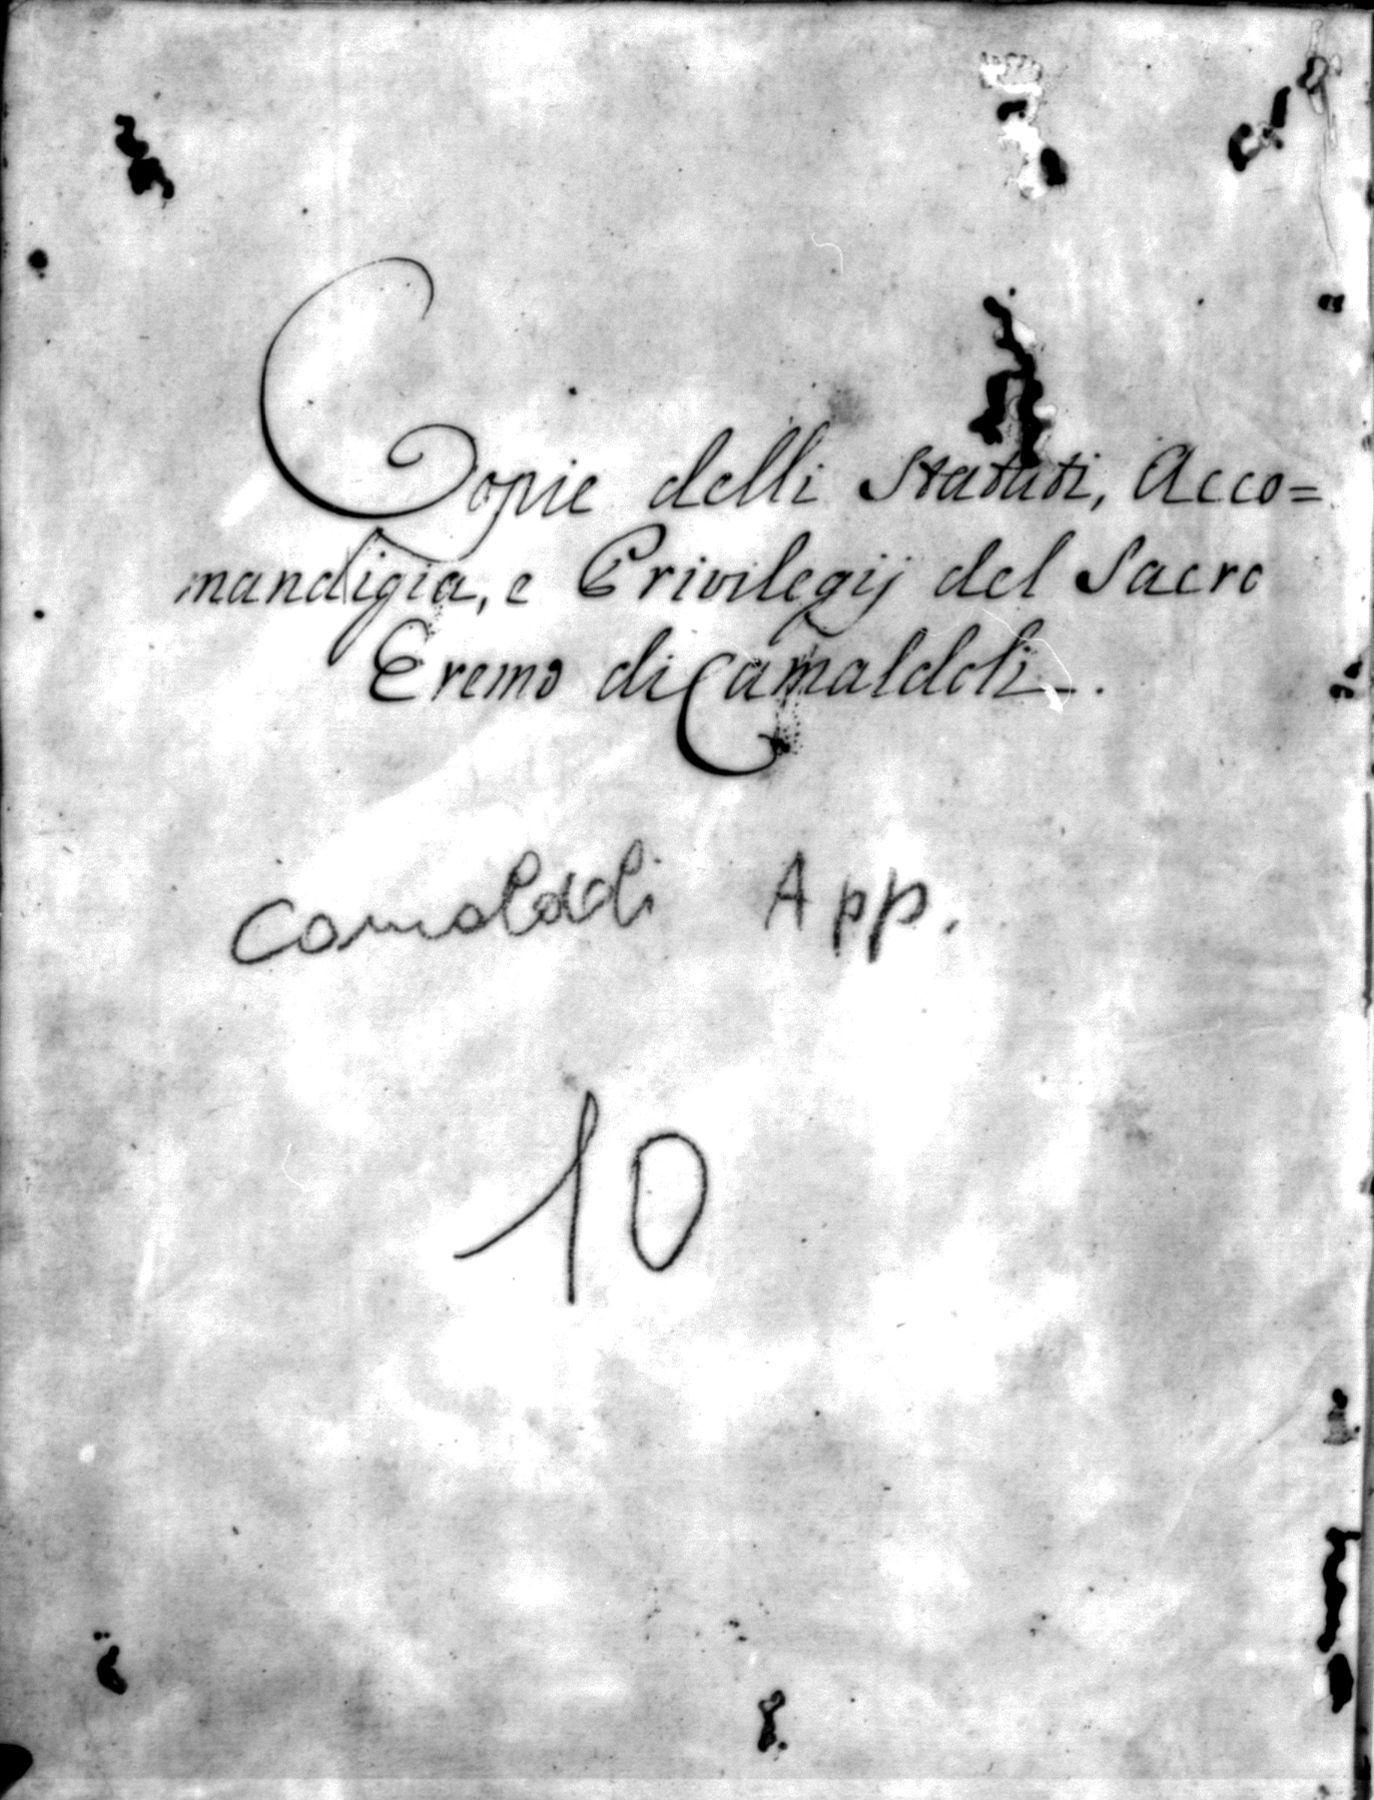 Copie delli Statuti, Acco=
mandigia, e Privilegij del Sacro
Eremo di Camaldoli.
Camaldoli App.
10